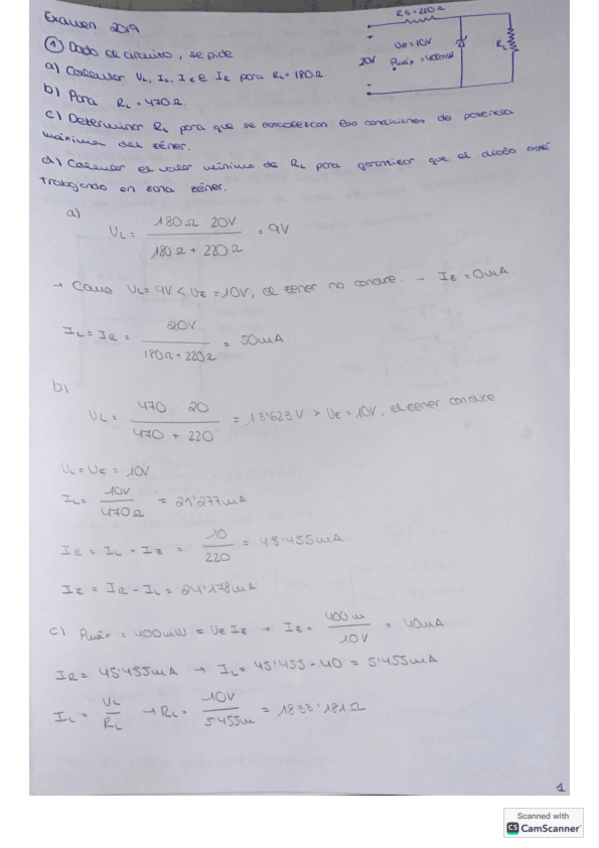 Examen 2019
① Dado el circuito, se pide
a) Calcular VL, IL, IZ e IR para RL = 180Ω
b) Para RL = 470Ω.
c) Determinar RL para que se establezcan las condiciones de potencia
máxima del zéner.
d) Calcular el valor mínimo de RL para garantizar que el diodo esté
trabajando en zona zéner.
RS = 220Ω
+
20V
-
VZ = 10V
Pmáx = 400mW
RL
a)
VL = 180Ω 20V / 180Ω + 220Ω = 9V
→ Como VL = 9V < VZ = 10V, el zener no conduce. → IZ = 0mA.
IL = IR = 20V / 180Ω + 220Ω = 50mA.
b)
VL = 470 20 / 470 + 220 = 13'623V > VZ = 10V, el zener conduce
VL = VZ = 10V
IL = 10V / 470Ω = 21'277mA
IR = IL + IZ = 10 / 220 = 45'455mA
IZ = IR - IL = 24'178mA
c) Pmáx = 400mW = VZ IZ → IZ = 400m / 10V = 40mA
IR = 45'455mA → IL = 45'455 - 40 = 5'455mA
IL = VL / RL → RL = 10V / 5'455m = 1833'181Ω
1
Scanned with
CS CamScanner